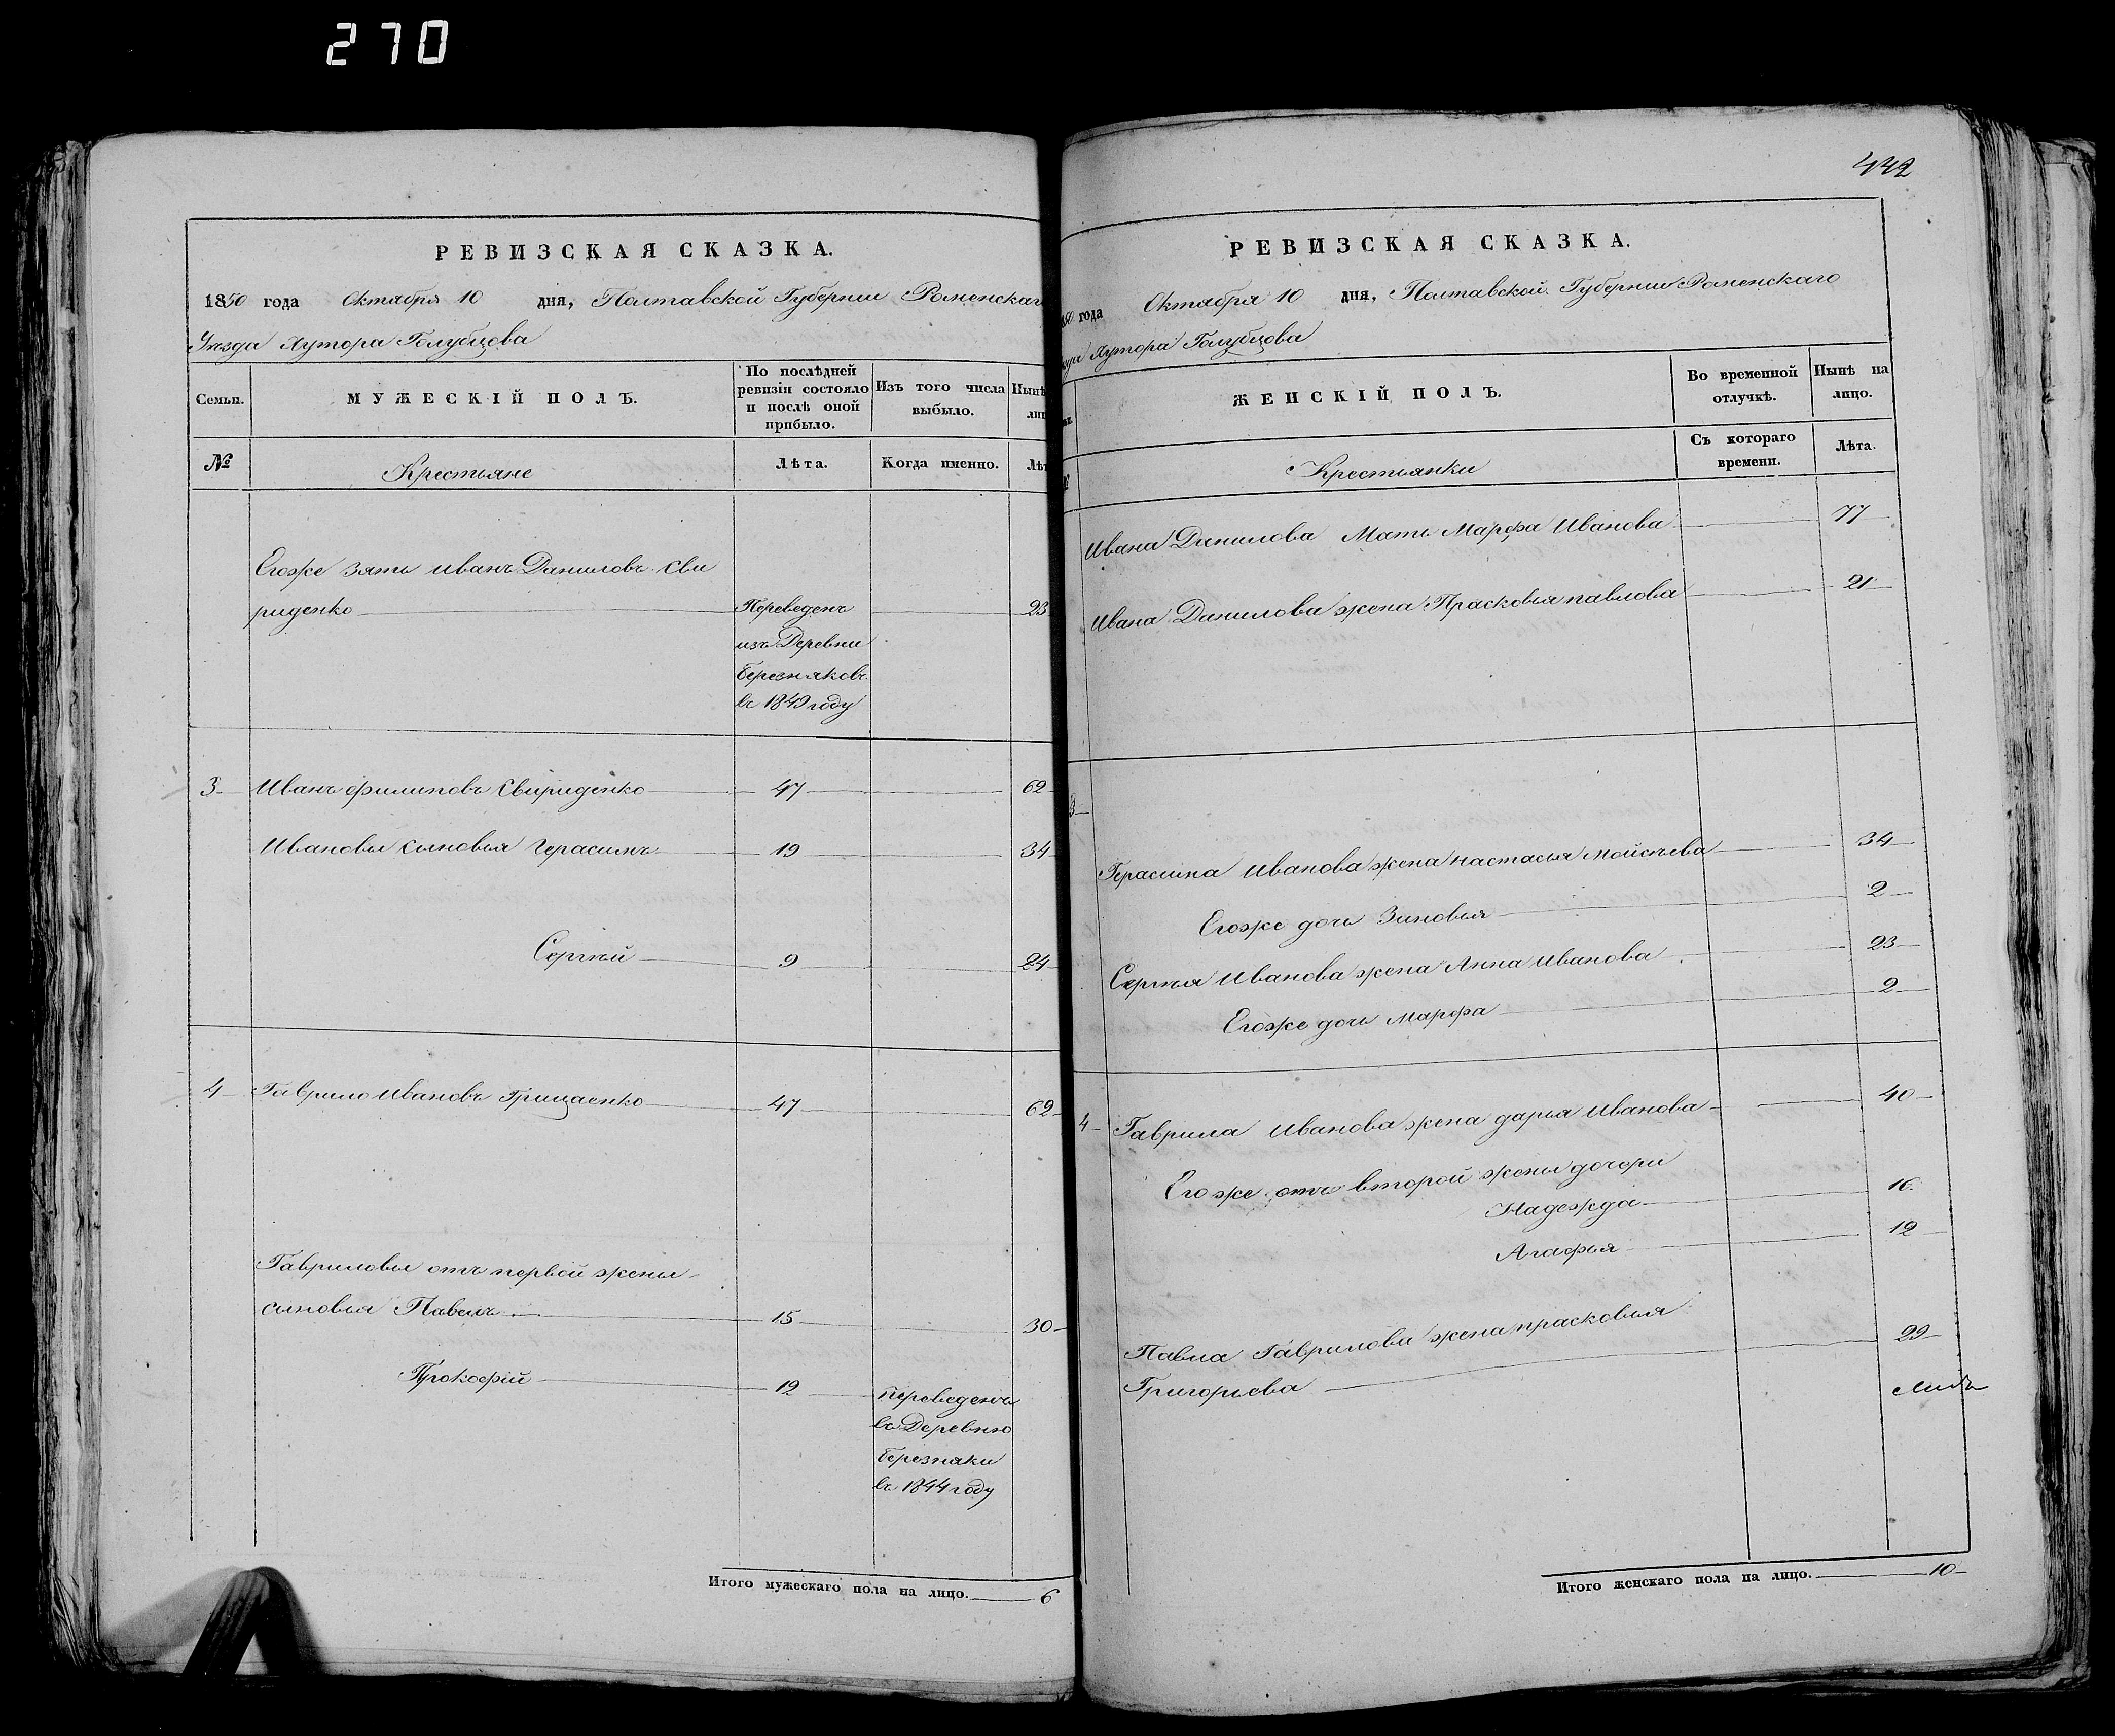 270
РЕВИЗСКАЯ СКАЗКА.
1850 года Октября 10 дня, Полтавской Губернии Роменскаго
Уѣзда Хутора Голубцова
Семьи.
МУЖЕСКІЙ ПОЛЪ.
По послѣдней ревизіи состояло и послѣ оной прибыло.
Изъ того числа выбыло.
Нынѣ
лиц
№
Крестьяне
Лѣта.
Когда именно.
Лѣт
Егоже зять Иванъ Даниловъ Сви
риденко 23
Переведенъ
изъ Деревни
Березняковъ
въ 1849 году
3 Иванъ Филиповъ Свириденко 47 62
Ивановы сыновья Герасимъ 19 34
Сергѣй 9 24
4 Гаврило Ивановъ Грицаенко 47 62
Гавриловы отъ первой жены
сыновья Павелъ 15 30
Прокофій 12
переведенъ
въ Деревню
Березняки
въ 1844 году
Итого мужескаго пола на лицо. 6
442
РЕВИЗСКАЯ СКАЗКА.
50 года Октября 10 дня, Полтавской Губернии Роменскаго
Хутора Голубцова
ЖЕНСКІЙ ПОЛЪ.
Во временной отлучкѣ.
Нынѣ на лицо.
Крестьянки
Съ котораго времени.
Лѣта.
Ивана Данилова Мать Марфа Иванова 77
Ивана Данилова жена Прасковья павлова 21
3
Герасима Иванова жена настасья Мойсѣева 34
Егоже дочь Зиновья 2
Сергѣя Иванова жена Анна Иванова 23
Егоже дочь Марфа 2
4 Гаврила Иванова жена дарья Иванова 40
Его же отъ второй жены дочери
Надежда 16
Агафья 12
Павла Гаврилова жена прасковья
Григорьева 29
Итого женскаго пола на лицо. 10